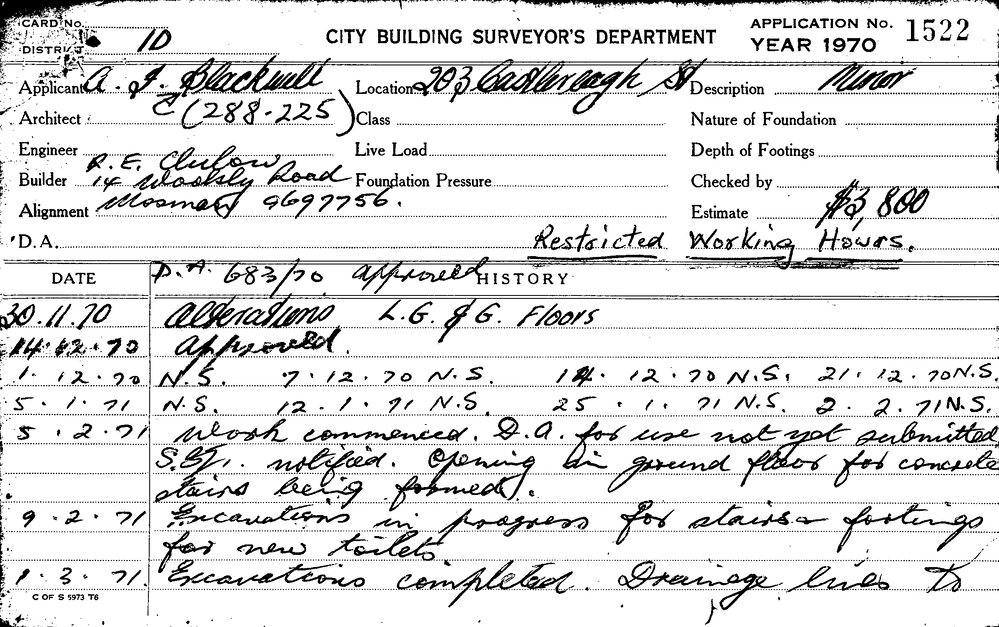 CARD No.
DISTRICT 1D
CITY BUILDING SURVEYOR'S DEPARTMENT
APPLICATION No. 1522
YEAR 1970
Applicant A. J. Blackwell
Location 203 Castlereagh St
Description Minor
Architect C (288-225)
Class
Nature of Foundation
Engineer R. E. Clulow
Live Load
Depth of Footings
Builder 14 Road
Foundation Pressure
Checked by
Alignment Mosman 9697756.
Estimate $3,800
D.A.
Restricted Working Hours.
DATE
D.A. 683/70 approved
HISTORY
30.11.70 Alterations L.G. & G. Floors
14.12.70 Approved.
1.12.70 N.S. 7.12.70 N.S. 14.12.70 N.S. 21.12.70 N.S.
5.1.71 N.S. 12.1.71 N.S. 25.1.71 N.S. 2.2.71 N.S.
5.2.71 Work commenced. D.A. for use not yet submitted
notified. Opening in ground floor for concrete
stairs being formed.
9.2.71 Excavations in progress for stairs & footings
for new toilets
1.3.71. Excavations completed. Drainage lines to
C OF S 5973 T6